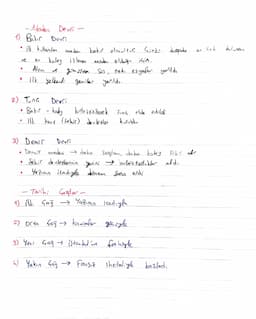 - Maden Devri -
1) Bakır Devri
• ilk kullanılan maden bakır olmuştur çünkü doğada en çok bulunan
ve en kolay işlenen maden olduğu için.
• Altın ve gümüşten süs, eşyalar yapıldı
• ilk yerleşik
2) Tunç Devri
• Bakır - kalay karıştırılarak tunç elde edildi
• ilk kent (şehir) devletleri kuruldu
3) Demir Devri
• Demir madeni → daha sağlam, daha kolay
• Şehir devletlerinin yerini → imparatorluklar aldı.
• Yazının icadıyla dönem sona erdi
- Tarihi Çağlar -
1) ilk Çağ → Yazının icadıyla
2) Orta Çağ → kavimler göçüyle
3) Yeni Çağ → istanbul'un fethiyle
4) Yakın Çağ → Fransız ihtilaliyle başladı.